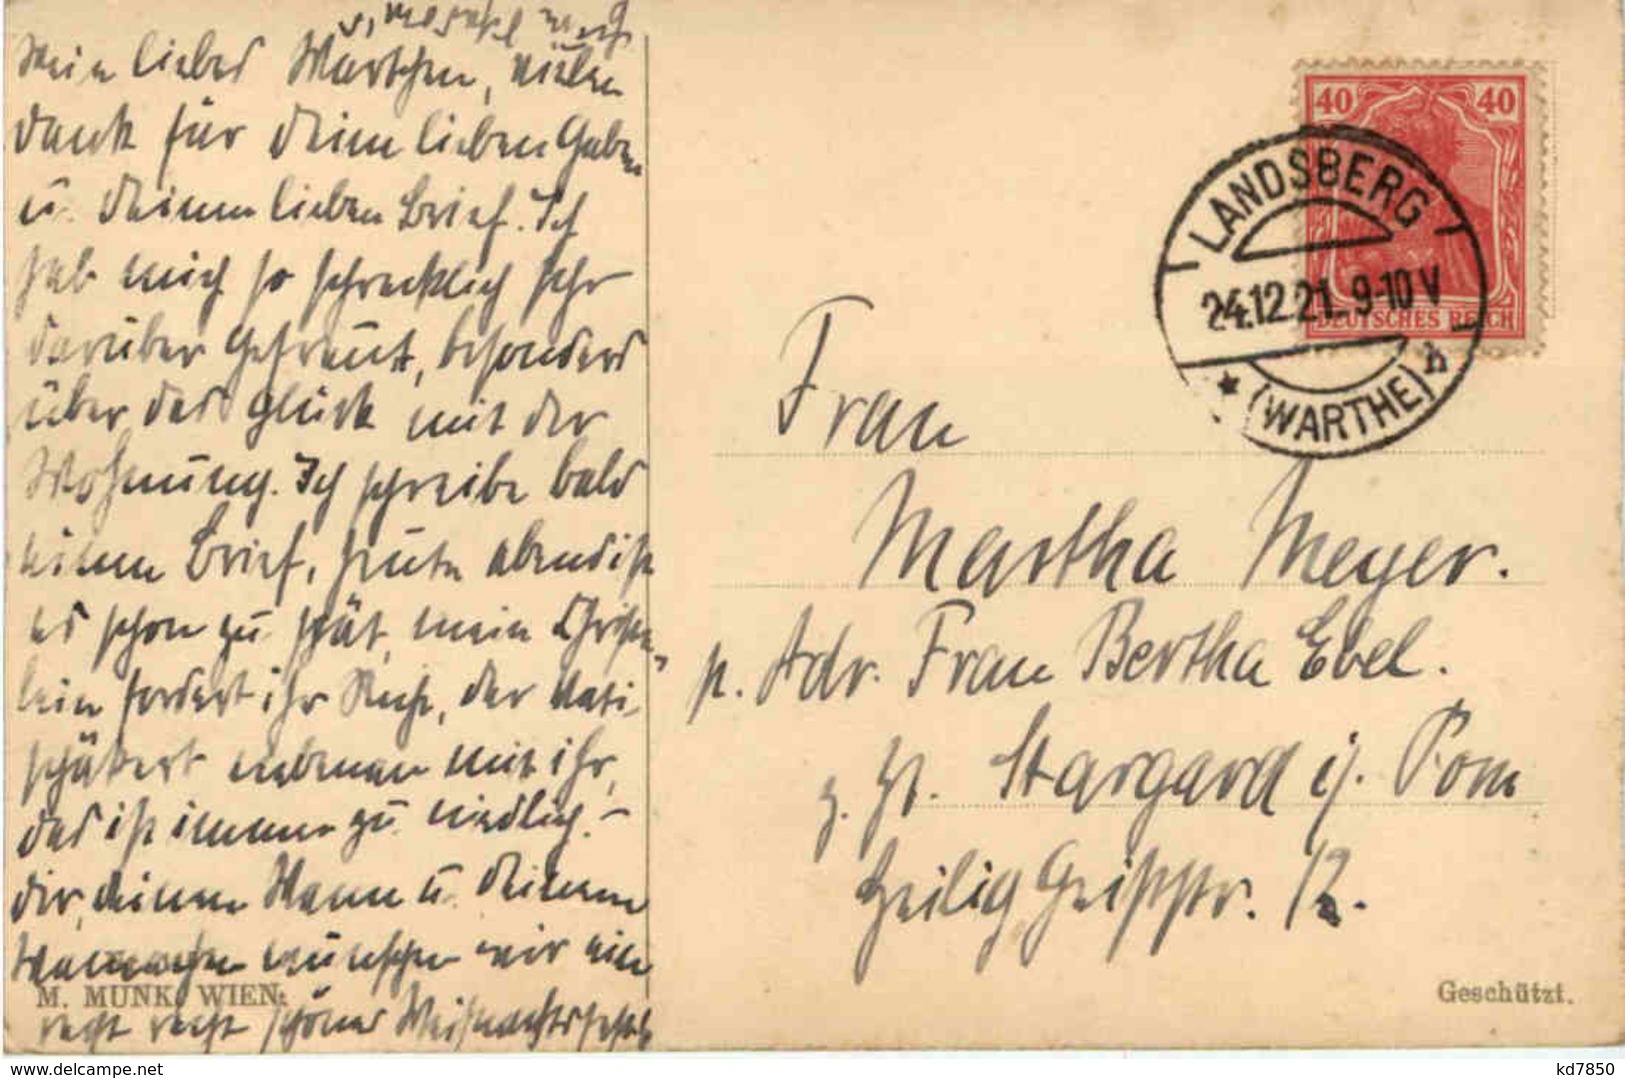 Mein liebes Marthchen, vielen
Dank für Deine lieben Gaben
u. Deinen lieben Brief. Ich
hab mich so schrecklich sehr
darüber gefreut, besonders
über das Glück mit der
Wohnung. Ich schreibe bald
einen Brief, heute abend ist
es schon zu spät, mein Christin-
lein fordert ihr Recht, der Vati
schäkert nebenan mit ihr,
das ist immer zu niedlich. –
Dir, Deinem Mann u. Deinem
wünschen wir ein
recht recht schönes Weihnachtsfest
M. MUNK, WIEN.
40 40
DEUTSCHES REICH
LANDSBERG
24.12.21. 9-10 V
* (WARTHE) h
Frau
Martha Meyer.
p. Adr. Frau Bertha Ebel.
z. Zt. Stargard i. Pom
Heilig Geiststr. 12.
Geschützt.
delcampe.net
kd7850